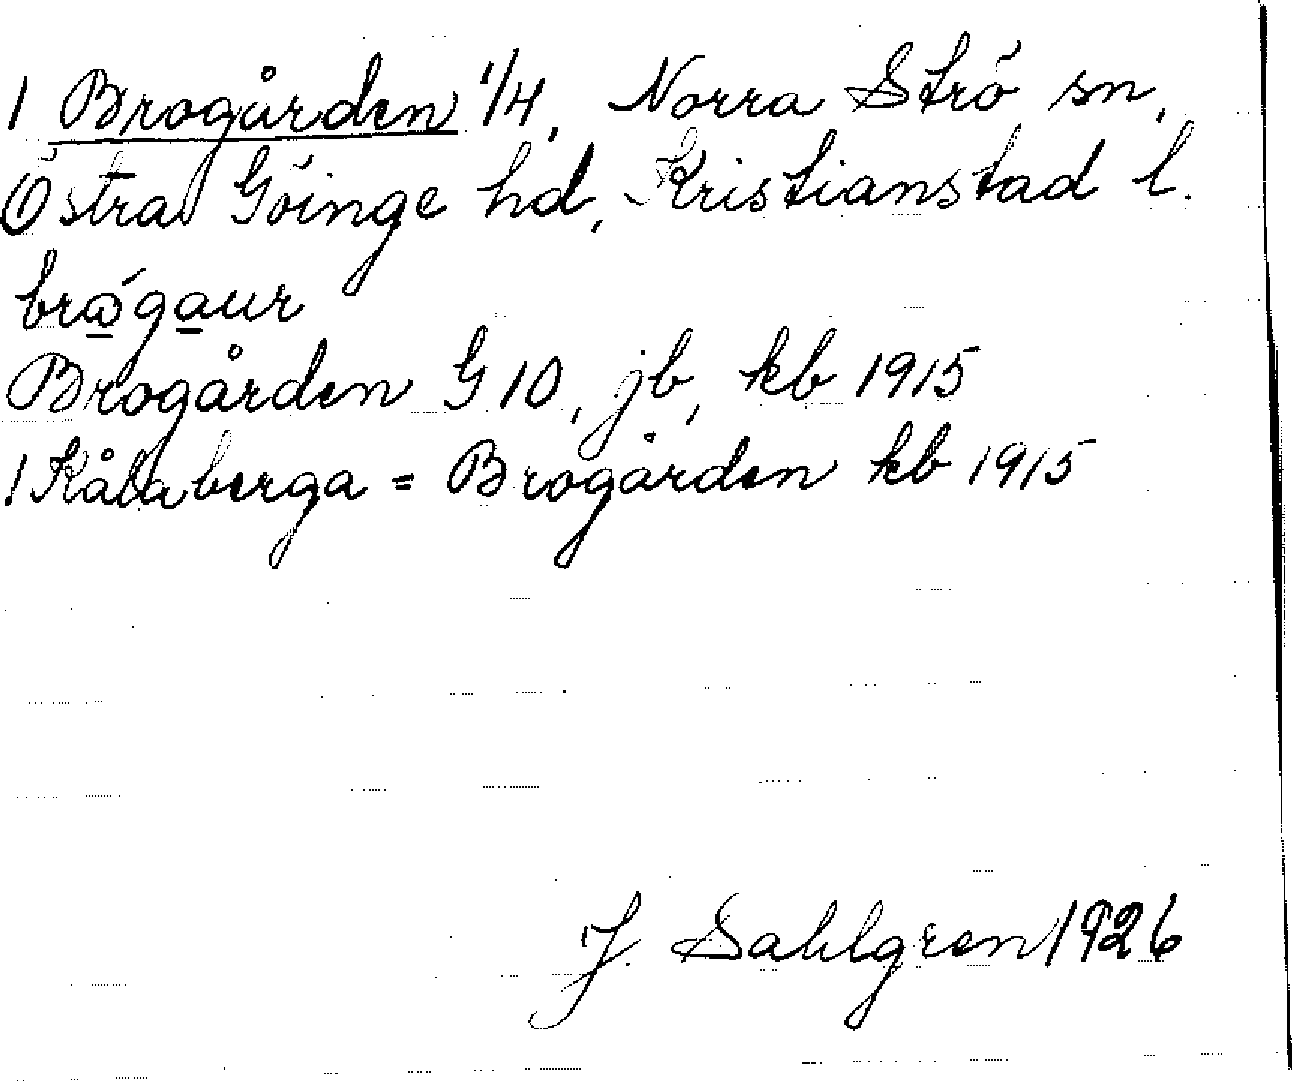 1 Brogården 1/4, Norra Strö sn,
Östra Göinge hd, Kristianstad l.
brǿgaur
Brogården G 10, jb, kb 1915
1 Kålaberga = Brogården kb 1915
J. Sahlgren 1926